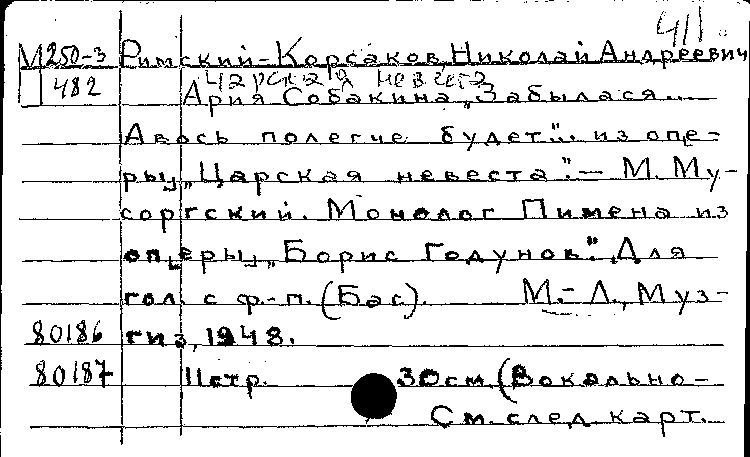 411
М250-3 Римский-Корсаков, Николай Андреевич
482 Царская невеста
Ария Собакина „Забылася...
Авось полегче будет"... из опе-
ры „Царская невеста".— М. Му-
соргский. Монолог Пимена из
оперы „Борис Годунов". Для
гол. с ф.-п. (Бас). М.-Л., Муз-
80186 гиз, 1948.
80187 11 стр. 30 см. (Вокально-
См. след. карт.